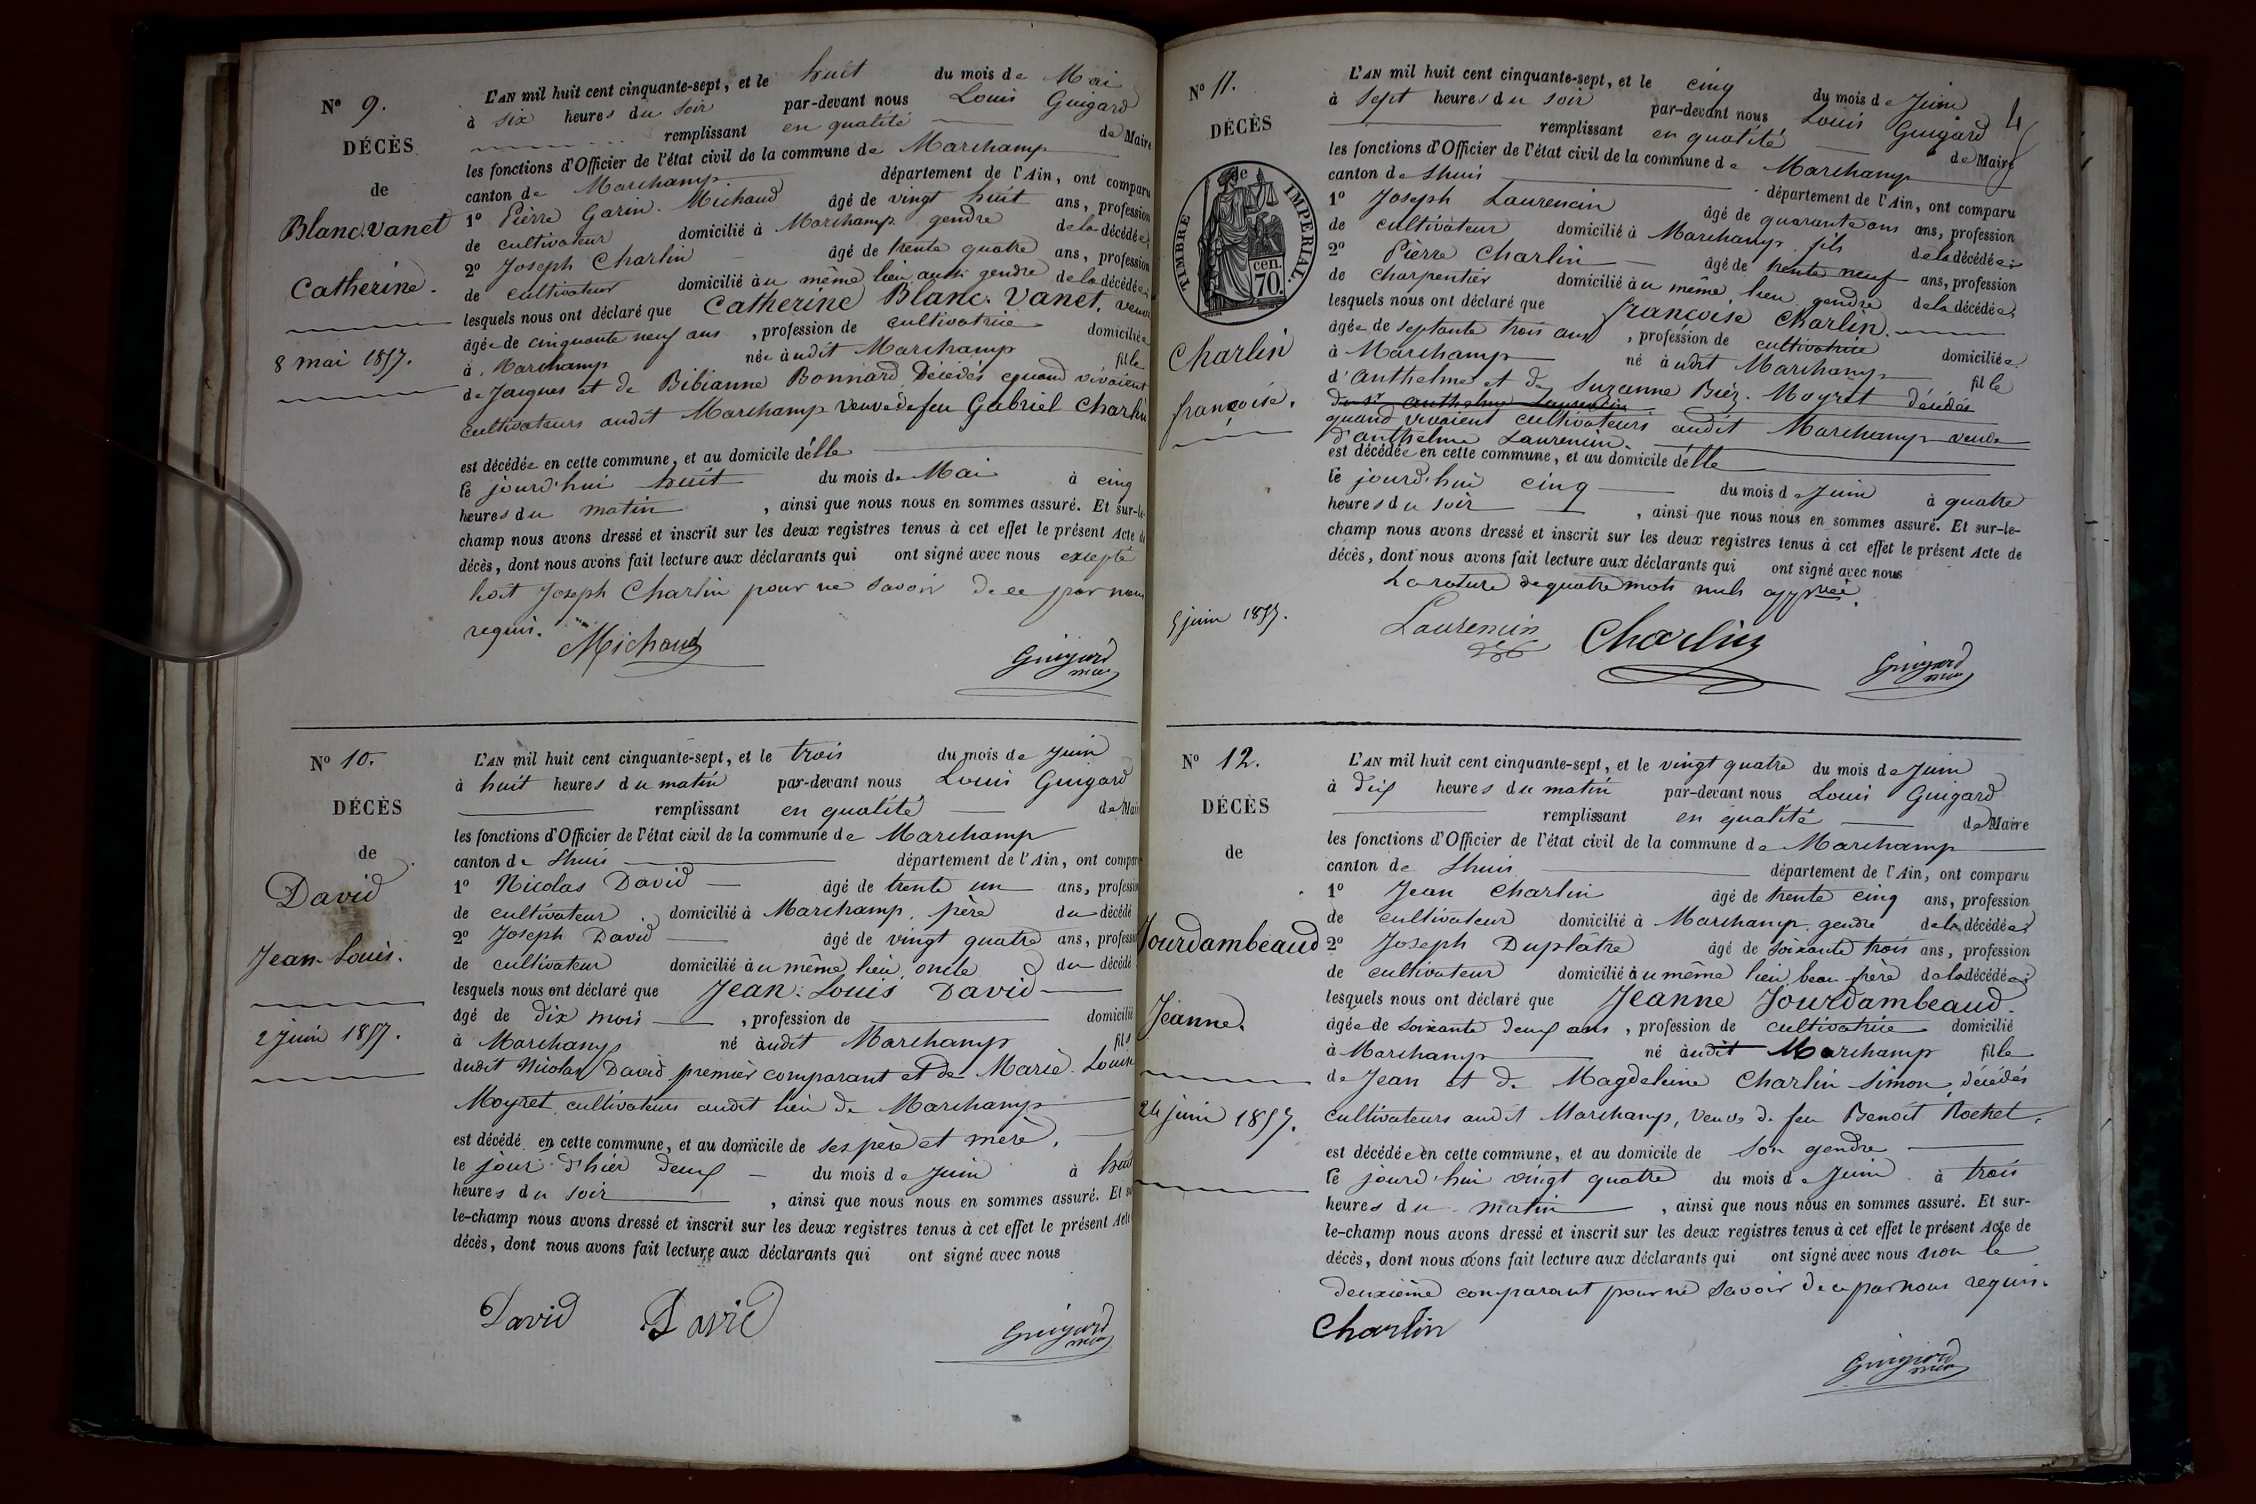 N° 9.
DÉCÈS
de
Blanc-Vanet
Catherine.
8 mai 1857.
L'AN mil huit cent cinquante-sept, et le huit du mois de Mai
à six heures du soir par-devant nous Louis Guigard
remplissant en qualité de Maire
les fonctions d'Officier de l'état civil de la commune de Marchamp
canton de Marchamp département de l'Ain, ont comparu
1° Pierre Garin-Michaud âgé de vingt huit ans, profession
de cultivateur domicilié à Marchamp gendre de la décédée
2° Joseph Charlin âgé de trente quatre ans, profession
de cultivateur domicilié au même lieu aussi gendre de la décédée
lesquels nous ont déclaré que Catherine Blanc-Vanet, veuve
âgée de cinquante neuf ans, profession de cultivatrice domiciliée
à Marchamp née audit Marchamp fille
de Jacques et de Bibianne Bonnard Décédés quand vivaient
cultivateurs audit Marchamp veuve de feu Gabriel Charlin
est décédée en cette commune, et au domicile d'elle
le jourd'hui huit du mois de Mai à cinq
heures du matin, ainsi que nous nous en sommes assuré. Et sur-le-
champ nous avons dressé et inscrit sur les deux registres tenus à cet effet le présent Acte de
décès, dont nous avons fait lecture aux déclarants qui ont signé avec nous excepté
Joseph Charlin pour ne savoir de ce par nous
requis.
Michaud
Guigard
N° 10.
DÉCÈS
de
David
Jean-Louis.
2 juin 1857.
L'AN mil huit cent cinquante-sept, et le trois du mois de Juin
à huit heures du matin par-devant nous Louis Guigard
remplissant en qualité de Maire
les fonctions d'Officier de l'état civil de la commune de Marchamp
canton de Lhuis département de l'Ain, ont comparu
1° Nicolas David âgé de trente un ans, profession
de cultivateur domicilié à Marchamp, père du décédé
2° Joseph David âgé de vingt quatre ans, profession
de cultivateur domicilié au même lieu, oncle du décédé
lesquels nous ont déclaré que Jean-Louis David
âgé de dix mois, profession de domicilié
à Marchamp né audit Marchamp fils
dudit Nicolas David premier comparant et de Marie-Louise
Moyret, cultivateurs audit lieu de Marchamp
est décédé en cette commune, et au domicile de ses père et mère,
le jour d'hier deux du mois de Juin à huit
heures du soir, ainsi que nous nous en sommes assuré. Et sur
le-champ nous avons dressé et inscrit sur les deux registres tenus à cet effet le présent Acte
décès, dont nous avons fait lecture aux déclarants qui ont signé avec nous
David David
Guigard
4
N° 11.
DÉCÈS
de
TIMBRE IMPERIAL.
70. cen.
Charlin
françoise.
5 juin 1857.
L'AN mil huit cent cinquante-sept, et le cinq du mois de Juin
à sept heures du soir par-devant nous Louis Guigard
remplissant en qualité de Maire
les fonctions d'Officier de l'état civil de la commune de Marchamp
canton de Lhuis département de l'Ain, ont comparu
1° Joseph Laurencin âgé de quarante ans ans, profession
de cultivateur domicilié à Marchamp, fils de la décédée
2° Pierre Charlin âgé de trente neuf ans, profession
de charpentier domicilié au même lieu gendre de la décédée
lesquels nous ont déclaré que françoise Charlin.
âgée de septante trois ans, profession de cultivatrice domiciliée
à Marchamp né audit Marchamp fille
d'Anthelme et de Suzanne Biéz-Moyret décédés
quand vivaient cultivateurs audit Marchamp veuve
d'anthelme Laurencin.
est décédée en cette commune, et au domicile d'elle
le jourd'hui cinq du mois de Juin à quatre
heures du soir, ainsi que nous nous en sommes assuré. Et sur-le-
champ nous avons dressé et inscrit sur les deux registres tenus à cet effet le présent Acte de
décès, dont nous avons fait lecture aux déclarants qui ont signé avec nous
La rature de quatre mots nuls
Laurencin Charlin
Guigard
N° 12.
DÉCÈS
de
Jourdambeaud
Jeanne.
24 juin 1857.
L'AN mil huit cent cinquante-sept, et le vingt quatre du mois de Juin
à dix heures du matin par-devant nous Louis Guigard
remplissant en qualité de Maire
les fonctions d'Officier de l'état civil de la commune de Marchamp
canton de Lhuis département de l'Ain, ont comparu
1° Jean Charlin âgé de trente cinq ans, profession
de cultivateur domicilié à Marchamp, gendre de la décédée
2° Joseph Duplâtre âgé de soixante trois ans, profession
de cultivateur domicilié au même lieu, beau frère de la décédée
lesquels nous ont déclaré que Jeanne Jourdambeaud.
âgée de soixante deux ans, profession de cultivatrice domicilié
à Marchamp né audit Marchamp fille
de Jean et de Magdeleine Charlin-Simon, décédés
cultivateurs audit Marchamp, veuve de feu Benoît Rochet.
est décédée en cette commune, et au domicile de son gendre
le jourd'hui vingt quatre du mois de Juin à trois
heures du matin, ainsi que nous nous en sommes assuré. Et sur-
le-champ nous avons dressé et inscrit sur les deux registres tenus à cet effet le présent Acte de
décès, dont nous avons fait lecture aux déclarants qui ont signé avec nous non le
deuxième comparant pour ne savoir de ce par nous requis.
Charlin
Guigard